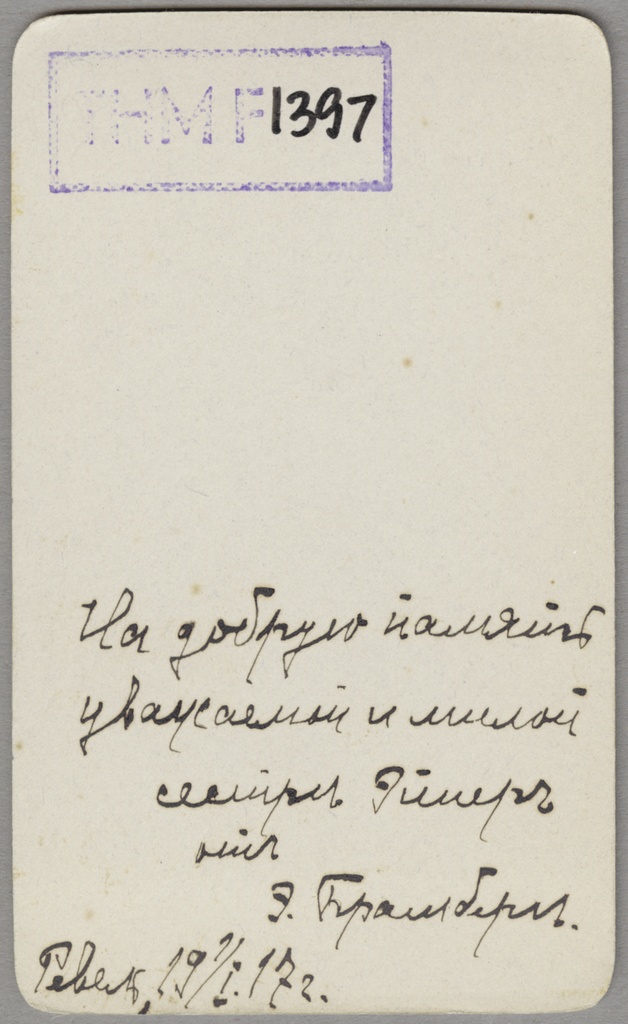 THM F 1397
На добрую память
уважаемой и милой
сестрѣ Эймеръ
отъ
Э. Брамбергъ.
Ревель, 19 1/I. 17 г.